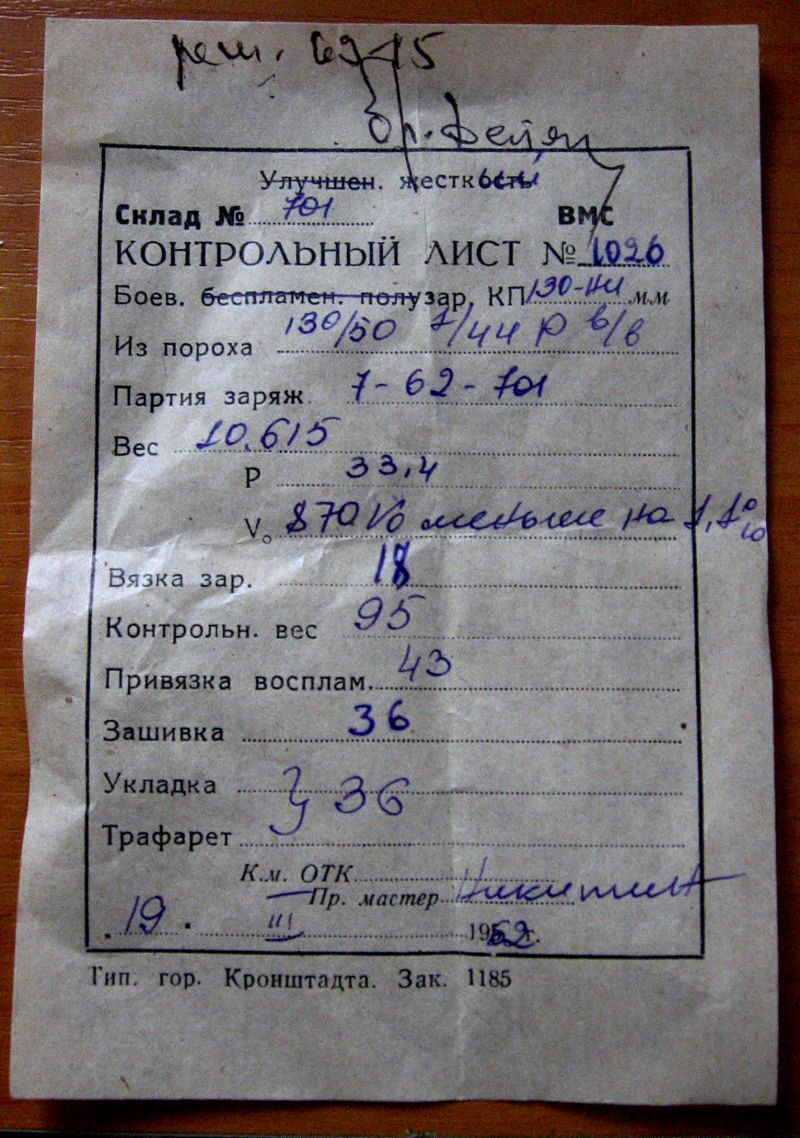 реш. 6945
Улучшен. жесткости
Склад № 701 ВМС
КОНТРОЛЬНЫЙ ЛИСТ № 1026
Боев. беспламен. полузар. КП 130-НИ мм
Из пороха 130/50 7/44 Р в/в
Партия заряж. 7-62-701
Вес 10.615
Р 33,4
V₀ 870 V₀ меньше на 1,1%
Вязка зар. 18
Контрольн. вес 95
Привязка восплам. 43
Зашивка 36
Укладка
} 36
Трафарет
К.м. ОТК
Пр. мастер Никитина
19. III 1962 г.
Тип. гор. Кронштадта. Зак. 1185